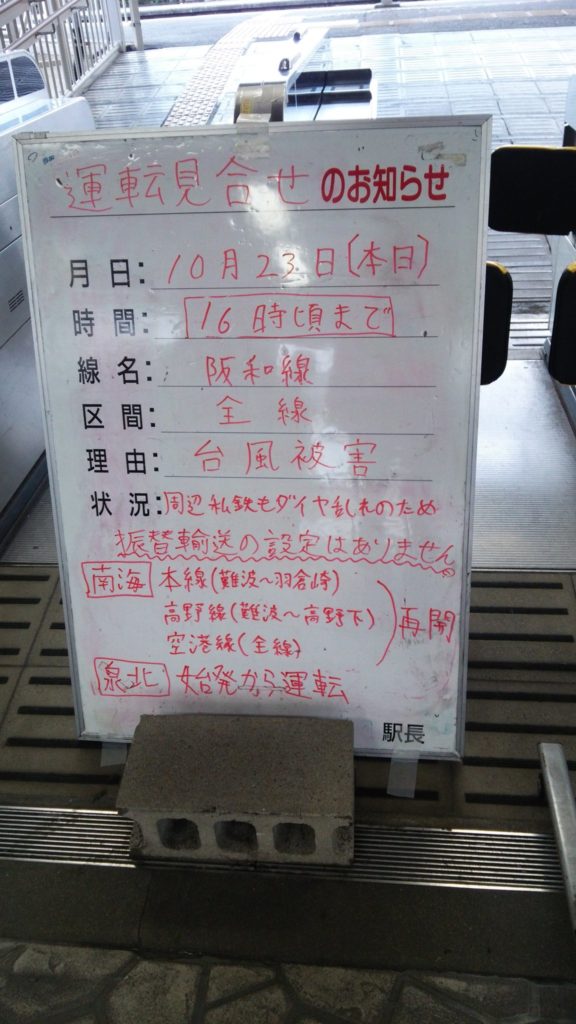 運転見合せのお知らせ
月日: 10月23日(本日)
時間: 16時頃まで
線名: 阪和線
区間: 全線
理由: 台風被害
状況: 周辺私鉄もダイヤ乱れのため
振替輸送の設定はありません。
南海 本線(難波~羽倉崎)
高野線(難波~高野下) 再開
空港線(全線)
泉北 始発から運転
駅長